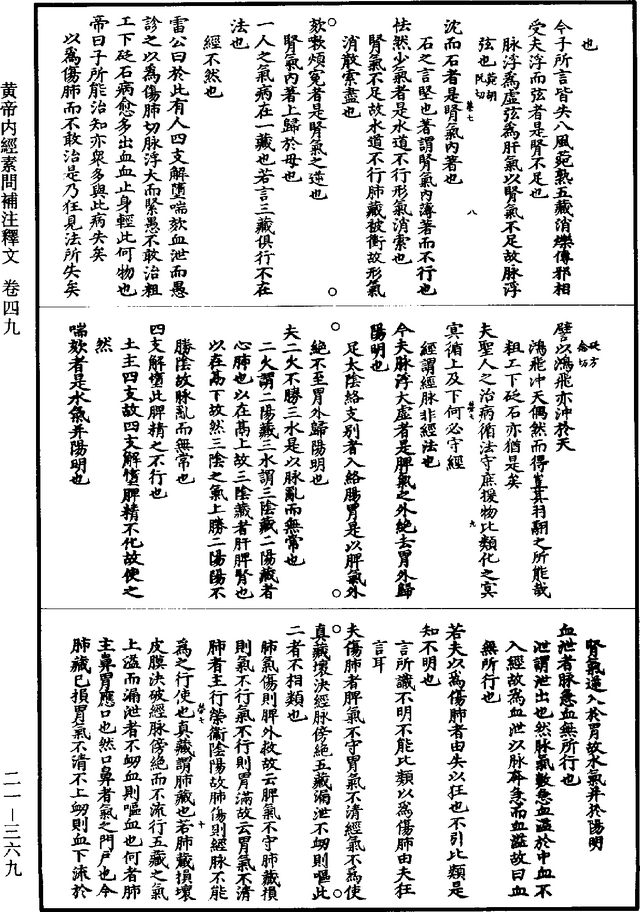 黄帝内經素問補注釋文　卷四九
二一—三六九
也
今子所言皆失八風菀熟五藏消爍傳邪相
受夫浮而弦者是腎不足也
脉浮爲虛弦爲肝氣以腎氣不足故脉浮
弦也
沈而石者是腎氣内著也
石之言堅也著謂腎氣内薄著而不行也
怯然少氣者是水道不行形氣消索也
腎氣不足故水道不行肺藏被衝故形氣
消散索盡也
欬嗽煩寃者是腎氣之逆也
腎氣内著上歸於母也
一人之氣病在一藏也若言三藏俱行不在
法也
經不然也
雷公曰於此有人四支解墮喘欬血泄而愚
診之以爲傷肺切脉浮大而緊愚不敢治粗
工下砭石病愈多出血血止身輕此何物也
帝曰子所能治知亦衆多與此病失矣
以爲傷肺而不敢治是乃狂見法所失矣
譬以鴻飛亦沖於天
鴻飛沖天偶然而得豈其羽翮之所能哉
粗工下砭石亦猶是矣
夫聖人之治病循法守度援物比類化之冥
冥循上及下何必守經
經謂經脉非經法也
今夫脉浮大虛者是脾氣之外絶去胃外歸
陽明也
足太陰絡支別者入絡腸胃是以脾氣外
絶不至胃外歸陽明也
夫二火不勝三水是以脉亂而無常也
二火謂二陽藏三水謂三陰藏二陽藏者
心肺也以在髙上故三陰藏者肝脾腎也
以在髙下故然三陰之氣上勝二陽陽不
勝陰故脉亂而無常也
四支解墮此脾精之不行也
土主四支故四支解墮脾精不化故使之
然
喘欬者是水氣并陽明也
腎氣逆入於胃故水氣并於陽明
血泄者脉急血無所行也
泄謂泄出也然脉氣數急血溢於中血不
入經故爲血泄以脉奔急而血溢故曰血
無所行也
若夫以爲傷肺者由失以狂也不引比類是
知不明也
言所識不明不能比類以爲傷肺由失狂
言耳
夫傷肺者脾氣不守胃氣不清經氣不爲使
真藏壞決經脉傍絶五藏漏泄不衂則嘔此
二者不相類也
肺氣傷則脾外救故云脾氣不守肺藏損
則氣不行氣不行則胃滿故云胃氣不清
肺者主行榮衞陰陽故肺傷則經脉不能
爲之行使也真藏謂肺藏也若肺藏損壞
皮膜決破經脉傍絶而不流行五藏之氣
上溢而漏泄者不衂血則嘔血也何者肺
主鼻胃應口也然口鼻者氣之門戸也今
肺藏已損胃氣不清不上衂則血下流於